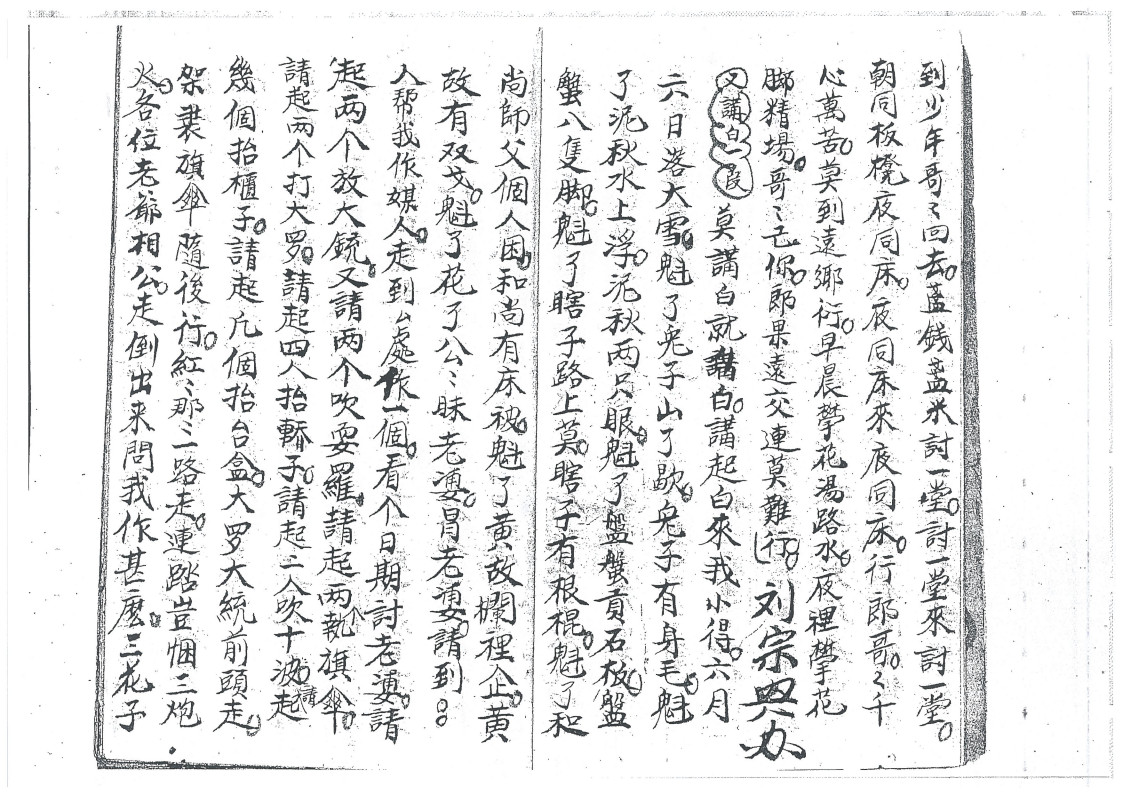 到少年哥〻回去。盖錢盖米討一堂。討一堂來討一堂。
朝同板櫈夜同床。夜同床來夜同床。行郎哥。〻千
心萬苦。莫到遠鄉行。早晨擧花湯路水。夜裡擧花
脚精場。哥〻乙你。郎果遠交連莫難行。 刘宗興办
又講白一段 莫講白就講白。講起白來我小得。六月
六日落大雪。魁了兎子山了歇。兎子有身毛。魁
了泥秋水上浮。泥秋兩只眼。魁了盤蟹貢石板。盤
蟹八隻脚。魁了瞎子路上莫。瞎子有根棍。魁了和
尚師父個人困。和尚有床被。魁了黄故欄裡企。黄
故有双戈。魁了花了公〻昧老婆。冒老婆。請到。
人帮我作媒人。走到厶處作一個。看个日期討老婆。請
起两个放大銃。又請两个吹耍羅。請起两个執旗傘。
請起两个打大罗。請起四人抬轎子。請起二人吹十波。請起
幾個抬櫃子。請起凢個抬台盒。大罗大統前頭走。
架裠旗傘隨後行。紅〻那〻一路走。連踏豈悃三炮
火。各位老爺相公。走倒出来問我作甚麽。三花子